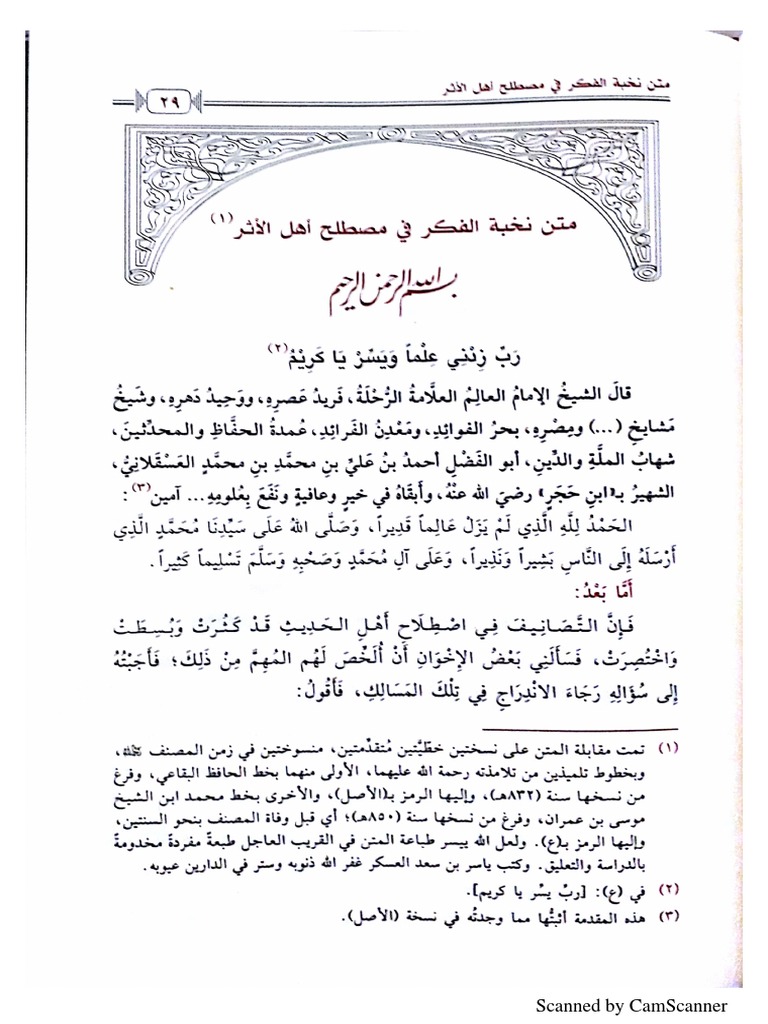 متن نخبة الفكر في مصطلح أهل الأثر
٢٩
متن نخبة الفكر في مصطلح أهل الأثر(١)
بسم الله الرحمن الرحيم
رَبِّ زِدْنِي عِلْماً وَيَسِّرْ يَا كَرِيْمُ(٢)
قالَ الشيخُ الإمامُ العالِمُ العلَّامةُ الرُّحْلَةُ، فَريدُ عَصرِهِ، ووَحِيدُ دَهرِهِ، وشَيخُ
مَشايخِ (...) ومِصْرِهِ، بحرُ الفوائِدِ، ومَعْدِنُ الفَرائِدِ، عُمدةُ الحفَّاظِ والمحدِّثينَ،
شهابُ الملَّةِ والدِّينِ، أبو الفَضْلِ أحمدُ بنُ عَليِّ بنِ محمَّدِ بنِ محمَّدٍ العَسْقَلانِيُّ،
الشهيرُ بـ«ابنِ حَجَرٍ» رضيَ الله عنْهُ، وأَبقَاهُ في خيرٍ وعافيةٍ ونَفَعَ بِعُلومِهِ... آمين(٣):
الحَمْدُ لِلَّهِ الَّذِي لَمْ يَزَلْ عَالِماً قَدِيراً، وَصَلَّى اللهُ عَلَى سَيِّدِنَا مُحَمَّدٍ الَّذِي
أَرْسَلَهُ إِلَى النَّاسِ بَشِيراً وَنَذِيراً، وَعَلَى آلِ مُحَمَّدٍ وَصَحْبِهِ وَسَلَّمَ تَسْلِيماً كَثِيراً.
أَمَّا بَعْدُ:
فَإِنَّ التَّصَانِيفَ فِي اصْطِلَاحِ أَهْلِ الحَدِيثِ قَدْ كَثُرَتْ وَبُسِطَتْ
وَاخْتُصِرَتْ، فَسَأَلَنِي بَعْضُ الإِخْوَانِ أَنْ أُلَخِّصَ لَهُم المُهِمَّ مِنْ ذَلِكَ؛ فَأَجَبْتُهُ
إِلى سُؤَالِهِ رَجَاءَ الانْدِرَاجِ فِي تِلْكَ المَسَالِكِ، فَأَقُولُ:
(١) تمت مقابلة المتن على نسختين خطِّيَّتين مُتقدِّمتين، منسوختين في زمن المصنف رحمه الله،
وبخطوط تلميذين من تلامذته رحمة الله عليهما، الأولى منهما بخط الحافظ البقاعي، وفرغ
من نسخها سنة (٨٣٢هـ)، وإليها الرمز بـ(الأصل)، والأخرى بخط محمد ابن الشيخ
موسى بن عمران، وفرغ من نسخها سنة (٨٥٠هـ)؛ أي قبل وفاة المصنف بنحو السنتين،
وإليها الرمز بـ(ع). ولعل الله ييسر طباعة المتن في القريب العاجل طبعةً مفردةً مخدومةً
بالدراسة والتعليق. وكتب ياسر بن سعد العسكر غفر الله ذنوبه وستر في الدارين عيوبه.
(٢) في (ع): [ربِّ يسِّر يا كريم].
(٣) هذه المقدمة أثبتُّها مما وجدتُه في نسخة (الأصل).
Scanned by CamScanner